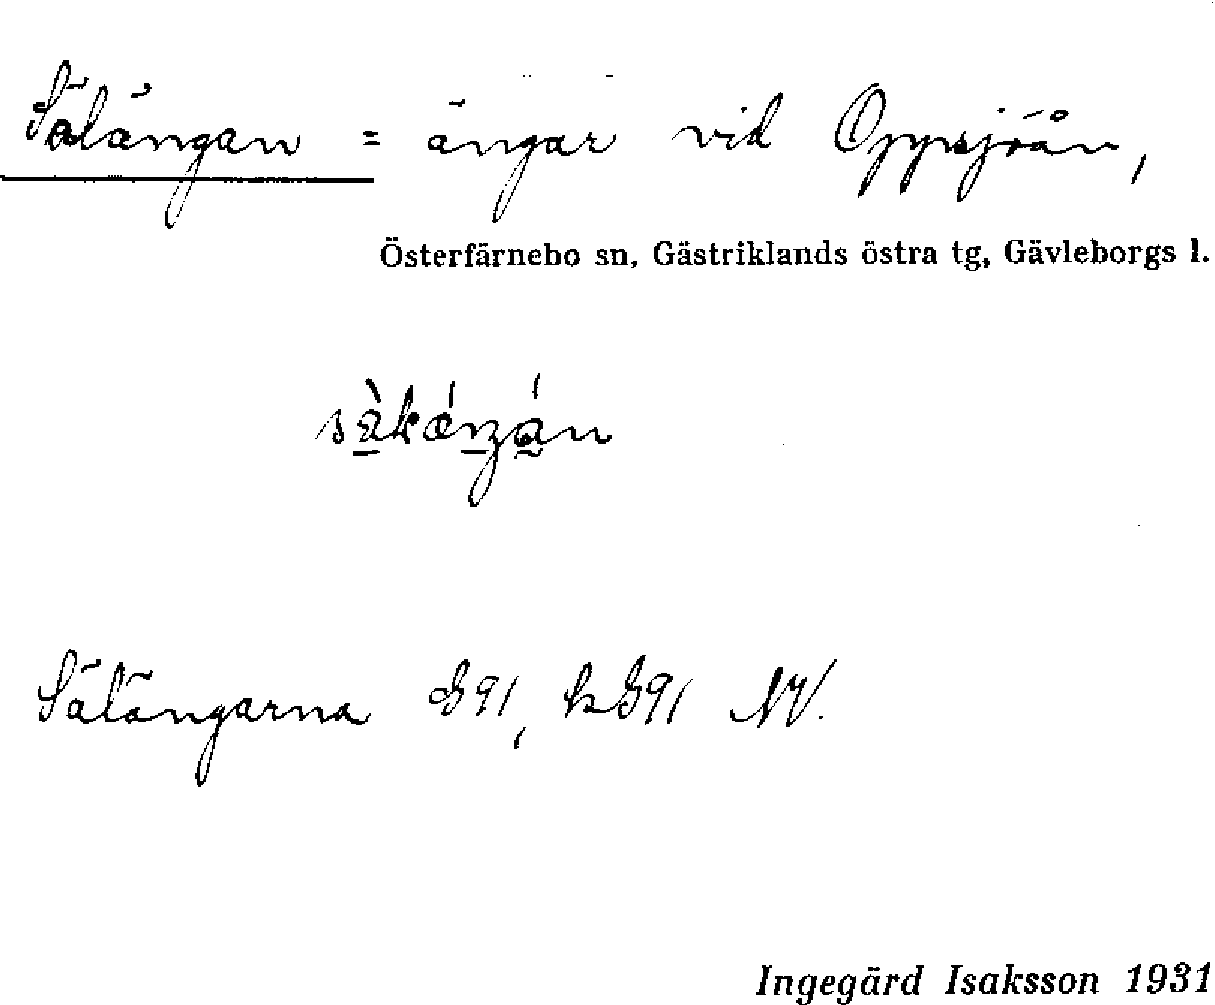 Sälängan = ängar vid Oppsjöån,
Österfärnebo sn, Gästriklands östra tg, Gävleborgs l.
Sälängarna G91, kG91 NV.
Ingegärd Isaksson 1931